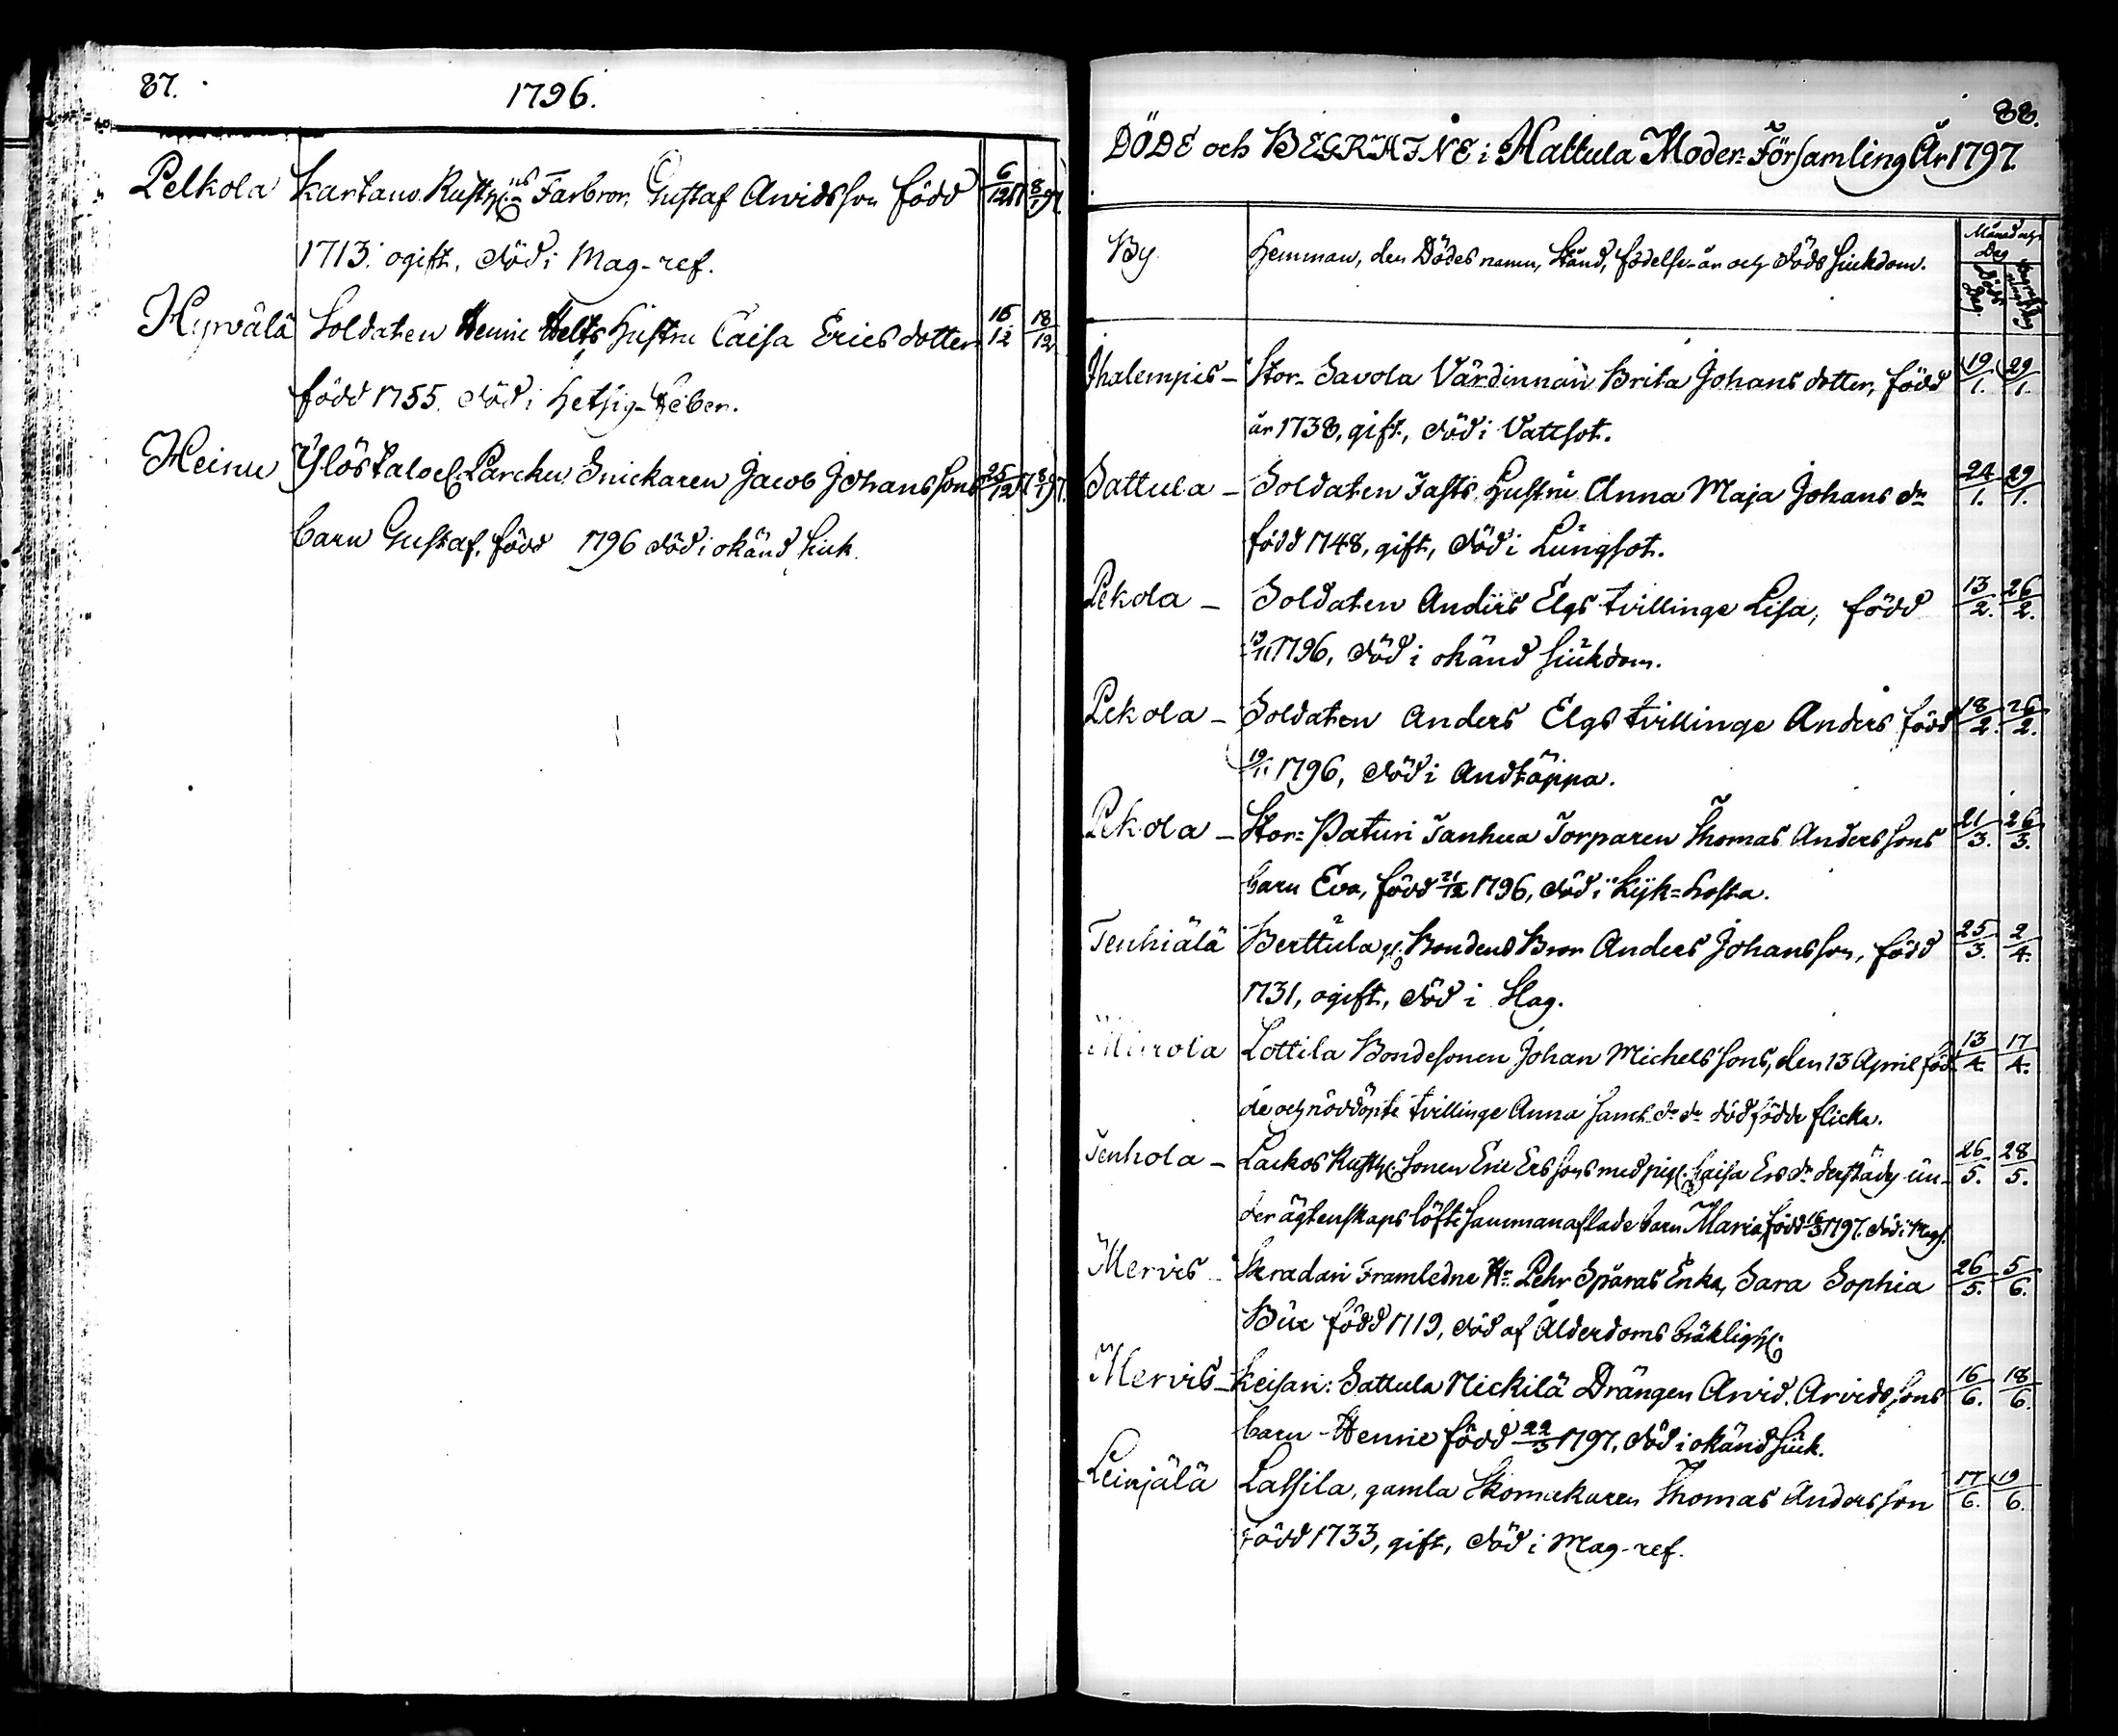 87.
1796.
Pelkola Kartano Rusth:ns Farbror, Gustaf Arvidsson född 6/12 8/1 97.
1713. ogift, död i Mag-ref.
Hyrvälä Soldaten Henric Helts Hustru Caisa Erics dotter 16/12 18/12
född 1755. död i Hetsig-Feber.
Heinu Ylöstalo Snickaren Jacob Johanssons 25/12 8/1 97.
barn Gustaf, född 1796 död i okänd siuk.
88.
DÖDE och BEGRAFNE i Hattula Moder-Församling År 1797.
By Hemman, den Dödes namn, Stånd, födelse-år och döds siukdom. Månad och Dag
Döds Dag
Ihalempis – Stor-Savola Värdinnan Brita Johans dotter, född 19/1. 29/1.
år 1738, gift, död i Vattsot.
Sattula – Soldaten Hustru Anna Maja Johans dr 24/1. 29/1.
född 1748, gift, död i Lungsot.
Pekola – Soldaten Anders Elgs tvillinge Lisa, född 13/2. 26/2.
19/11 1796, död i okänd siukdom.
Pekola – Soldaten Anders Elgs tvillinge Anders född 18/2. 26/2.
19/11 1796, död i Andtäppa.
Pekola – Stor-Paturi Tanhua Torparen Thomas Anderssons 21/3. 26/3.
barn Eva, född 21/12 1796, död i Kijk-hosta.
Tenhiälä Berttula Bondens Bror Anders Johansson, född 25/3. 2/4.
1731, ogift, död i Slag.
Mierola Lottila Bondesonen Johan Michelssons, den 13 April föd- 13/4. 17/4.
de och nöddöpte tvillinge Anna samt do do dödfödde flicka.
Tenhola – Lackos Rusth: Sonen Eric Erssons med pig: Caisa Ers dr derstädes un- 26/5. 28/5.
der ägtenskaps löfte sammanaflade barn Maria, född 16/3 1797. död i Mags.
Mervis – Skradari Framledne Hr Pehr Spåras Enka, Sara Sophia 26/5. 5/6.
född 1719, död af Ålderdoms bräkligh:
Mervis – Keisari: Sattula Nickilä Drängen Arvid Arvidssons 16/6. 18/6.
barn Henric född 22/3 1797, död i okänd siuk.
Leinjälä Lassila, gamla Skomakaren Thomas Andersson 17/6. 19/6.
född 1733, gift, död i Mag-ref.